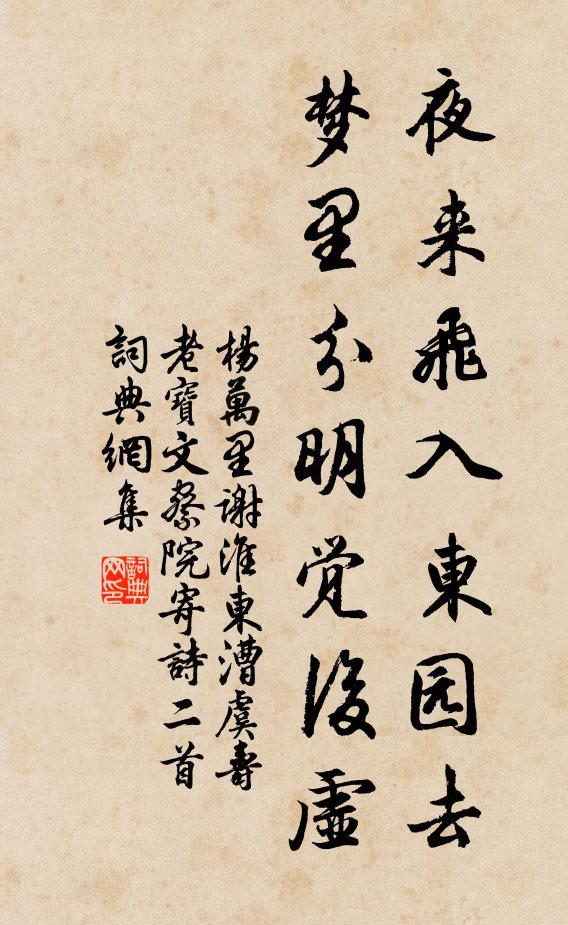 夜来飛入東园去
梦里分明觉後虛
楊萬里謝淮東漕虞壽
老寶文察院寄詩二首
詞典網集
詞典网印